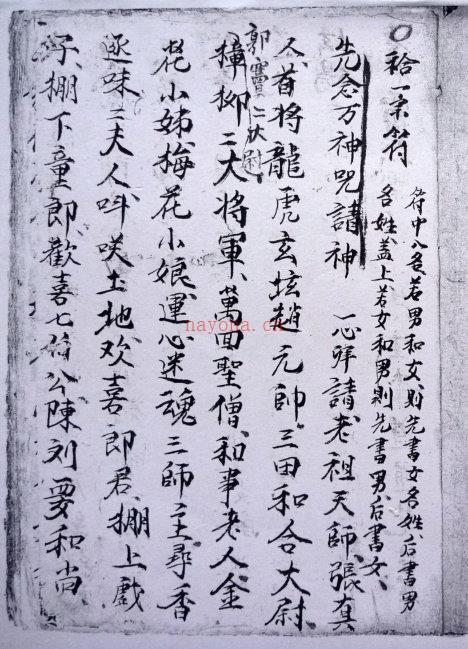 袷一宗符
符中八名若男和女則先書女名姓后書男
名姓盖上若女和男則先書男后書女
先念万神咒請神 一心拜請老祖天師張真
人首将龍虎玄坛趙元帅三田和合大尉
郭竇二伏尉
撞抑二大将軍萬面聖僧和事老人金
花小姊梅花小娘運心迷魂三師主尋香
逐味二夫人叫笑土地欢喜郎君棚上戲
子棚下童郎歡喜七伯公陳刘要和尚
nayona.cn